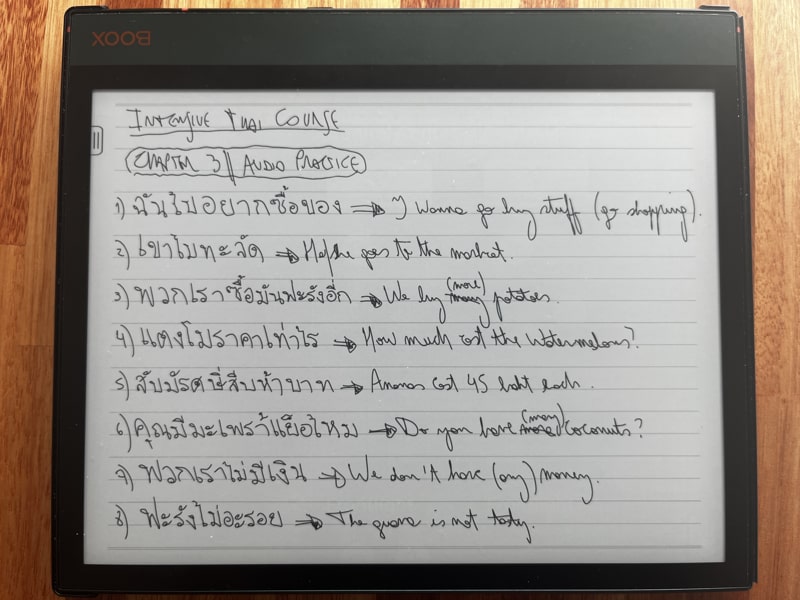 BOOX
INTENSIVE THAI COURSE
CHAPTER 3 || AUDIO PRACTICE
1) ฉันไปอยากซื้อของ → I wanna go buy stuff (go shopping).
2) เขาไปทะลัด → He/she goes to the market.
3) พวกเราซื้อมันฟะรังอีก → We buy many (more) potatoes.
4) แตงโมราคาเท่าไร → How much cost the watermelons?
5) สับปัรดสี่สิบห้าบาท → Ananas cost 45 baht each.
6) คุณมีมะเพร้าแยือไหม → Do you have more (many) coconuts?
7) พวกเราไม่มีเงิน → We don't have (any) money.
8) ฟะรังไม่อะรอย → The guava is not tasty.